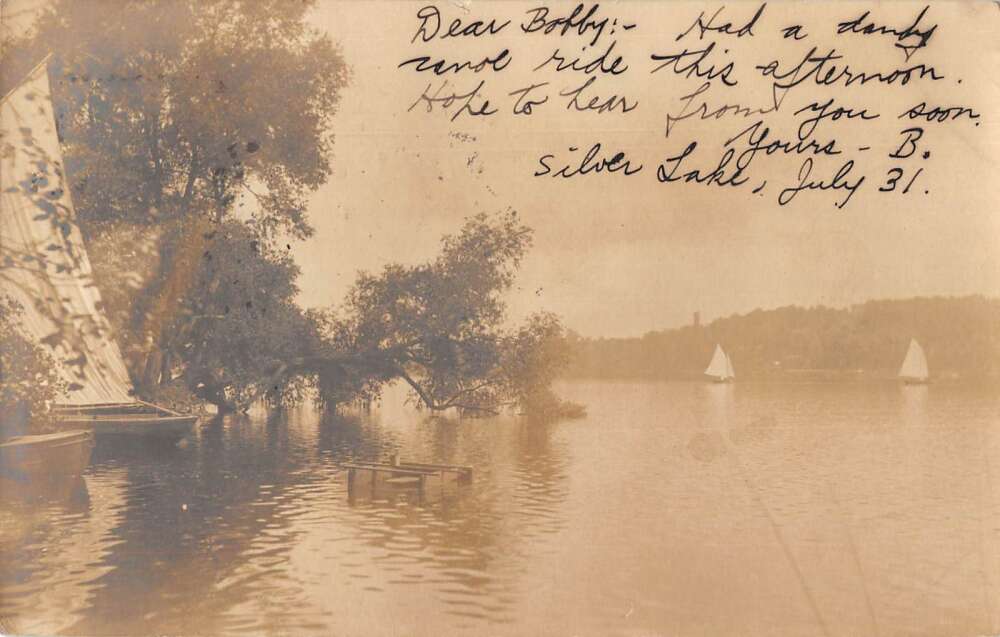 Dear Bobby:- Had a dandy
canoe ride this afternoon.
Hope to hear from you soon.
Yours - B.
Silver Lake, July 31.